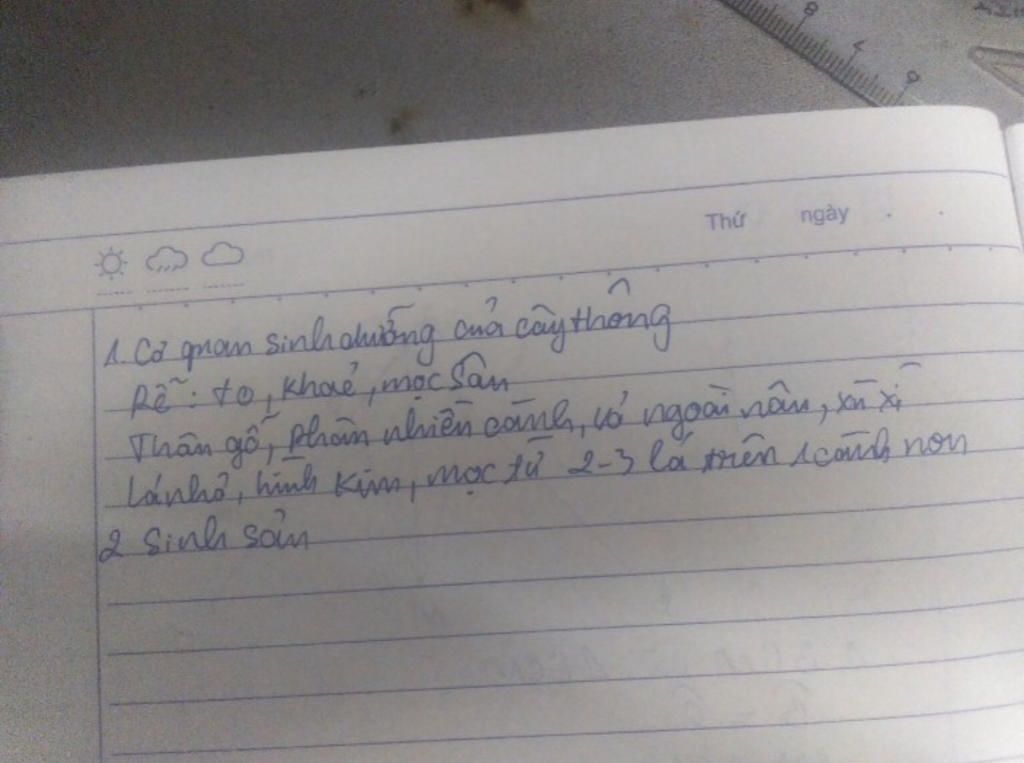 Thứ ngày
1. Cơ quan sinh dưỡng của cây thông
Rễ: to, khoẻ, mọc sâu
Thân gỗ, phân nhiền cành, vỏ ngoài nâu, xù xì
Lá nhỏ, hình kim, mọc từ 2-3 lá trên 1 cành non
2 Sinh sản